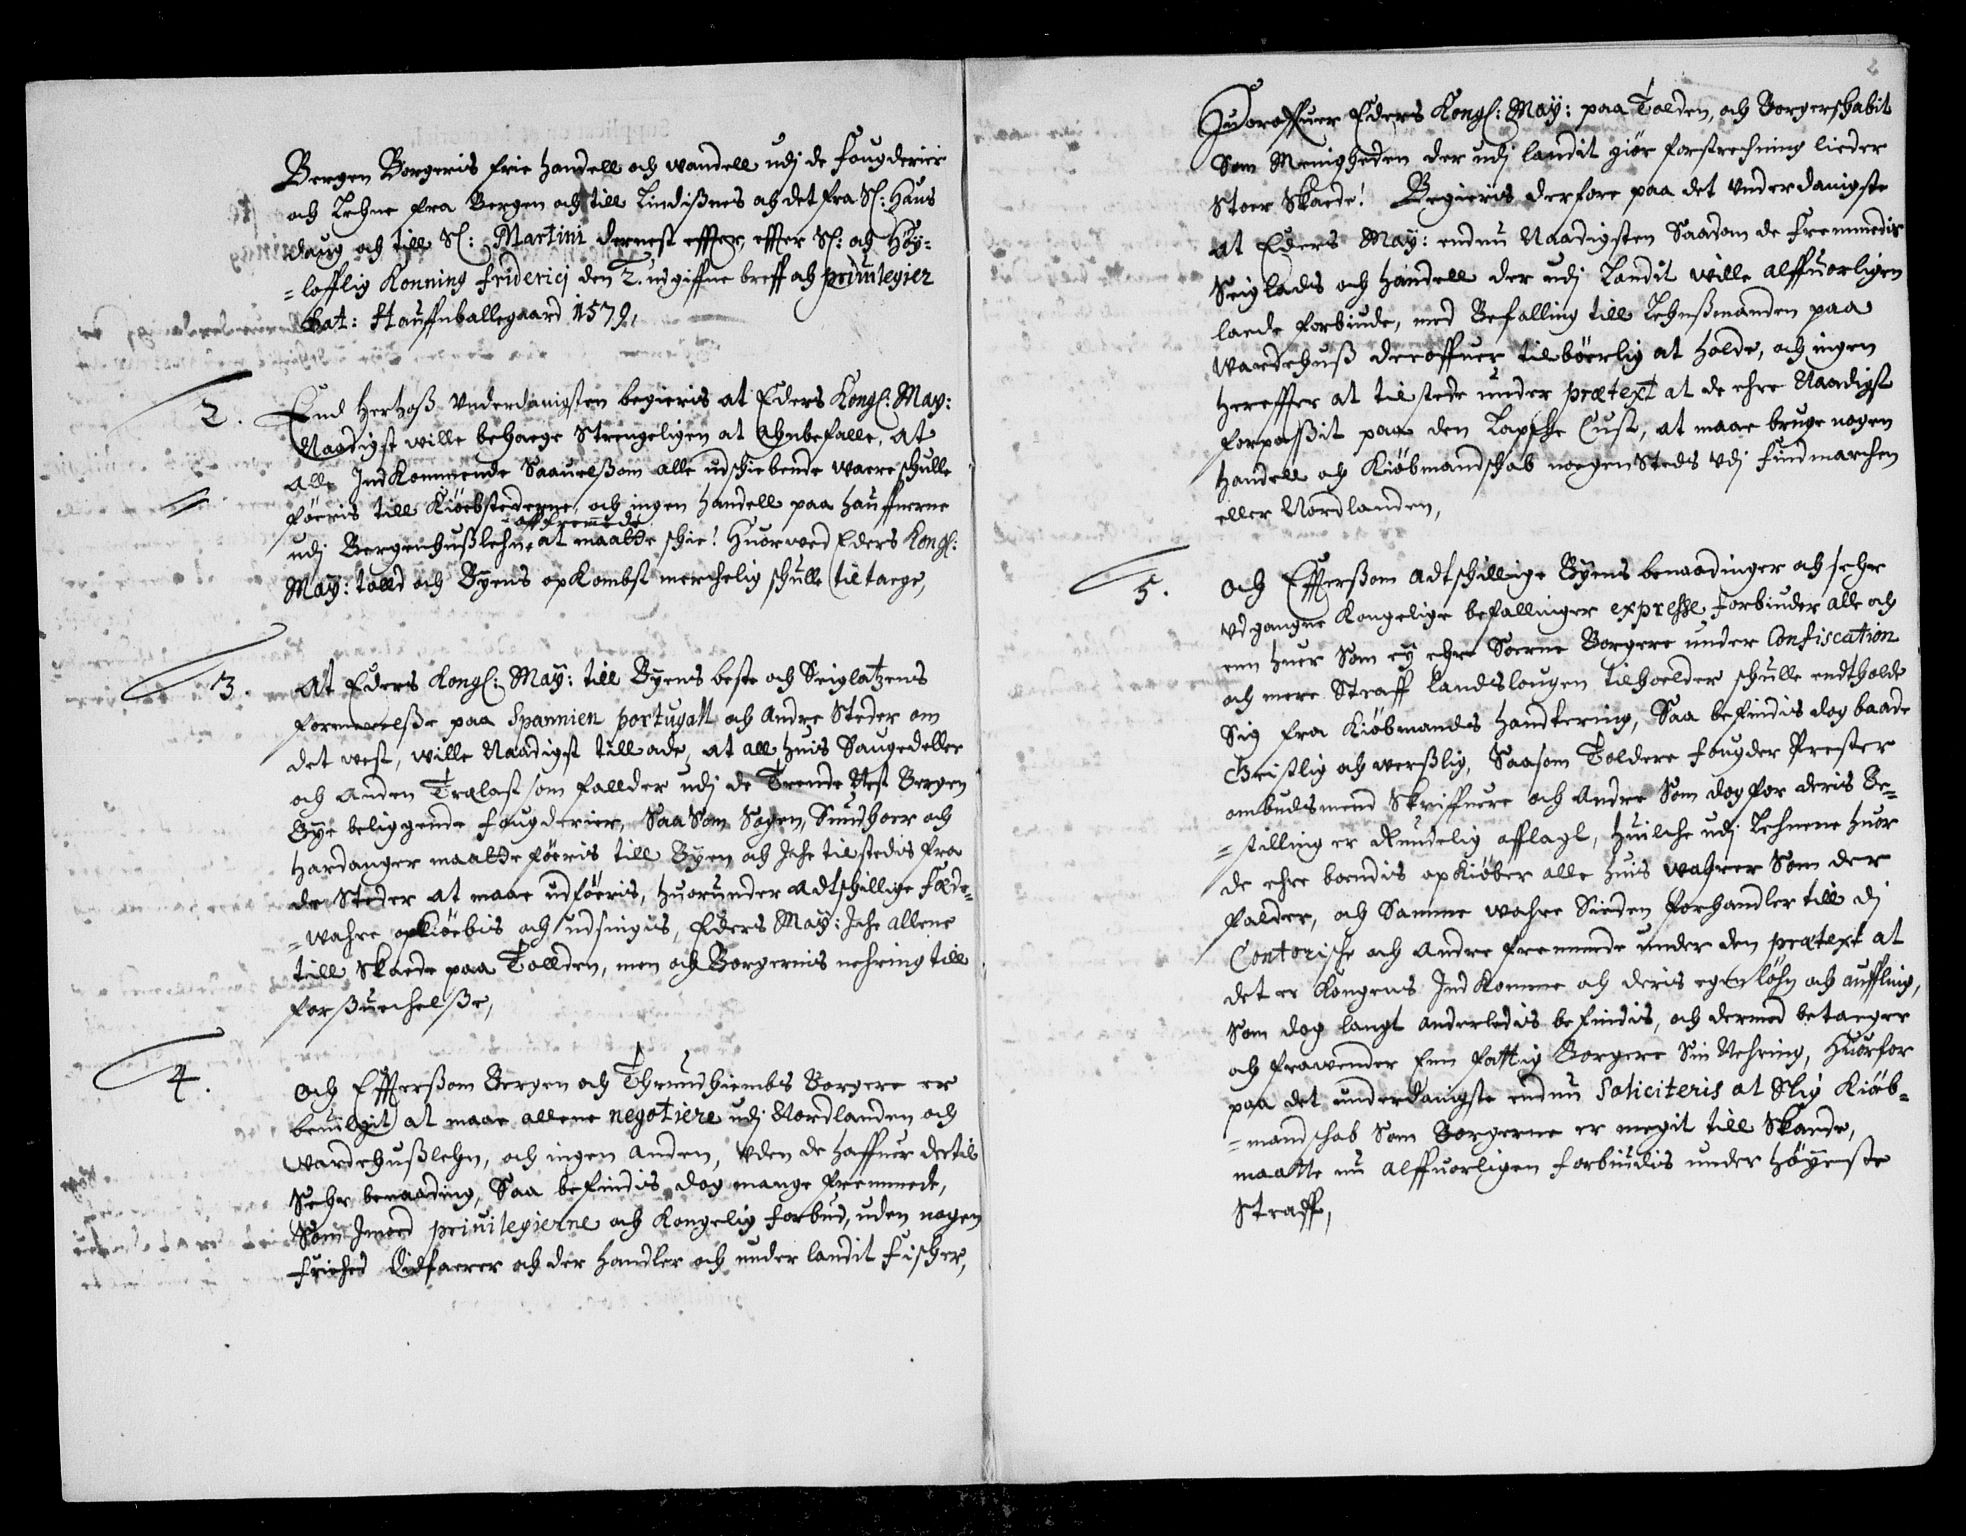 Bergen Borgeris frie handell och wandell udj de fougderier
och Lehne fra Bergen och till Lindißnes och det fra S: Hans
daug och till S: Martini dernest effter effter S: och Høy-
=lofflig Konning Friderici den 2. udgiffne breff och priuilegier
Dat: Hauffnballegaard 1579,
2. End Hertoß Underdanigsten begieris at Eders Kongl: May:
Naadigst wille behaege Strengeligen at Ahnbefalle, at
alle IndKommende Saauelsom alle udschibende ware schulle
føeris till Kiøebstederne, och ingen handell paa hauffnerne
aff fremmede
udj Bergenhußlehn, at maatte schie! Huorwed Eders Kongl:
May: tolld och Byens opKombst merchelig schulle tiltaege,
3. At Eders Kongl: May: till Byens beste och Seiglatzens
formerelße paa Spannien portugall och Andre Steder om
det west, wille Naadigst tillade, at all huis Saugedeller
och Anden Trælast som fallder udj de Trende Nest Bergen
Bye beliggende fougderier, Saa Som Sogen, Sundhoer och
Hardanger maatte føeris till Byen och Iche tilstedis fra
de Steder at maae udføeris, huorunder Adtschillige fæde-
=wahre opkiøebis och udsnigis, Eders May: Iche allene
till Skaede paa Tollden, men och Borgernis nehring till
forßuechelße,
4. Och Effterßom Bergen och Thrundhiembs Borgere er
beuilgit at maae allene negotiere udj Nordlanden och
Wardehußlehn, och ingen Anden, uden de haffuer dertil
Sehr benaading, Saa befindis dog mange fremmede,
Som Imod priuilegierne och Kongelig forbud, uden nogen
friehed Didfaerer och der handler och under landit Fischer,
Huoroffuer Eders Kongl: May: paa Tolden, och Borgerskabit
Som Menigheden der udj landit giør forstrechning lieder
Stoer Skaede! Begieris derfore paa det Underdanigste
at Eders May: endnu Naadigsten Saadan de Fremmedis
Seiglads och handell der udj Landit wille alffuorligen
laede forbiude, med Befalling till Lehnßmanden paa
Wardehuß deroffuer tilbøerlig at holde, och ingen
hereffter at tilstede under prætext at de ehre Naadigst
forpaßit paa den Lapsche Cust, at maae bruge nogen
handell och Kiøbmandschab noegen Steds udj findmarchen
eller Nordlanden,
5. Och Effterßom Adtschillige Byens benaadinger och sehr
udgangne Kongelige befallinger expresse forbiuder alle och
enn huer Som ey ehre Soerne Borgere under Confiscation
och mere Straff Landslougen tilhoelder schulle endtholde
Sig fra Kiøbmands handtering, Saa befindis dog baade
Geistlig och werßlig, Saasom Toldere fougder Prester
ombudsmend Skriffuere och Andre Som dog for deris Be-
=stilling er Rundelig afflagt, huilche udj Lehnene huor
de ehre boendis opKiøber alle huis wahrer Som der
falder, och Samme wahre Sieden forhandler till di
Contorische och Andre fremmede under den prætext at
det er Kongens IndKomme och deris egen løhn och auffling,
Som dog langt anderledis befindis, och dermed betaeger
och frawender Enn fattig Borgere Sin Nehring, Huorfor
paa det underdanigste endnu Soliciteris at Slig Kiøb-
=mandschab Som Borgerne er megit till Skaede,
maatte nu alffuorligen forbiudis under Høyeste
Straff,